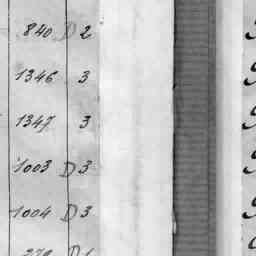 840 D 2
1346 3
1347 3
1003 D 3
1004 D 3